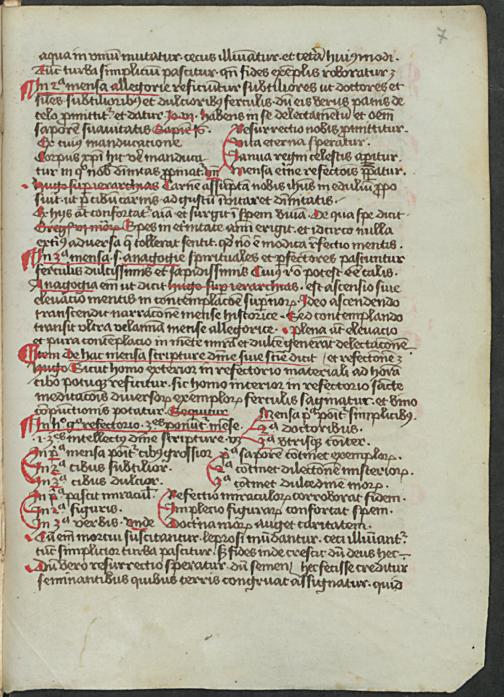 7
aqua in vinum mutatur. cecus illuminatur. et cetera huiusmodi.
Tunc turba simplicium pascitur. qn fides exemplis roboratur
In 2ª mensa allegorie reficiuntur subtiliores ut doctores et
siles subtilioribus et dulcioribus ferculis. dum eis verus panis de
celo promittitur et datur. habens in se delectamentum et omnem
saporem suauitatis Sapie 16. Resurrectio nobis promittitur
Ex cuius manducatione Vita eterna speratur.
Corpus xpi hic vel manduca Janua regni celestis aperitur.
tur in quo nobis divinitas propinatur Mensa eterne refectionis paratur.
Hugo super ierarchias Carne assumpta nobis ihus in edulium proposuit
ut per cibum carnis ad gustum inuitaret divinitatis.
Ex hijs autem confortatur anima et surgit in spem viuam. De qua spe dicit
Gregorius in moralibus Spes in eternitate animum erigit. et idcirco nulla
exterius aduersa que tollerat sentit. quod non est modica refectio mentis.
In 3ª mensa s. anagogie spirituales et perfectiores pascuntur
ferculis dulcissimis et sapidissimis Cuius ratio potest esse talis.
Anagogia enim ut dicit hugo super ierarchias. est ascensio siue
eleuacio mentis in contemplacione supernorum. Ideo ascendendo
transcendit narracionem mense historice. Sed contemplando
transit vltra velamina mense allegorice. plena ut eleuacio
et pura contemplacio in mente mirra et dulce generat delectacione
Item De hac mensa scripture diuine siue scientie dicit et refectione
hugo Sicut homo exterior in refectorio materiali ad hora
cibo potuque reficitur. sic homo interior in refectorio sacre
meditacionis diuersorum exemplorum ferculis saginatur. et vino
compunctionis potatur. Sequitur Mensa prima ponitur simplicibus.
In hoc quoque refectorio. 3es ponuntur mense 2ª doctoribus.
i. 3es intellectus diuine scripture. 3ª vtrisque communiter.
In prima mensa ponitur cibus grossior prima saporem continet exemplorum.
In 2ª cibus subtilior. 2ª continet dilectionem misteriorum.
In 3ª cibus dulcior. 3ª continet dulcedinem morum.
In prima pascit miraculis Refectio miraculorum corroborat fidem.
In 2ª figuris. Impletio figurarum confortat spem.
In 3ª verbis. vnde Doctrina morum auget caritatem.
Cum enim mortui suscitantur. leprosi mundantur. ceci illuminantur
tunc simpliciorum turba pascitur. Et fides inde crescit dum deus hec
Dum vero resurrectio speratur. dum semen hec fecisse creditur
seminantibus quibus terris congruat assignatur. quid